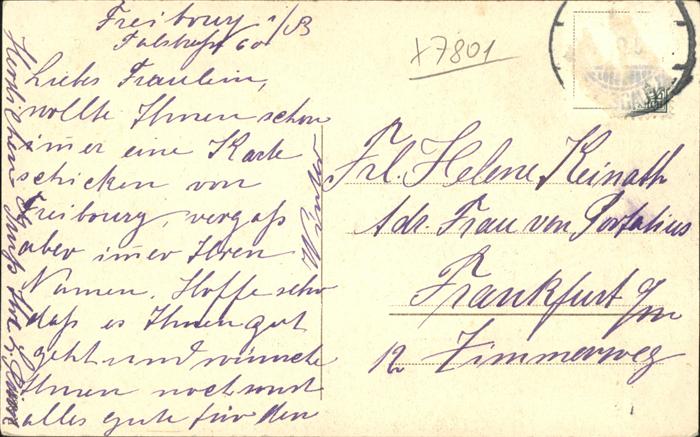 Freibourg i/B
Talstraße 60
Liebes Fräulein,
wollte Ihnen schon
im̄er eine Karte
schicken von
Freibourg, vergaß
aber im̄er Ihren
Namen. Hoffe sehr
daß es Ihnen gut
geht und wünsche
Ihnen noch sonst
alles gute für den
Winter
Herzlichen Gruß
x7801
Frl. Helene Keinath
Adr. Frau von Portalius
Frankfurt a/m
12 Zimmerweg